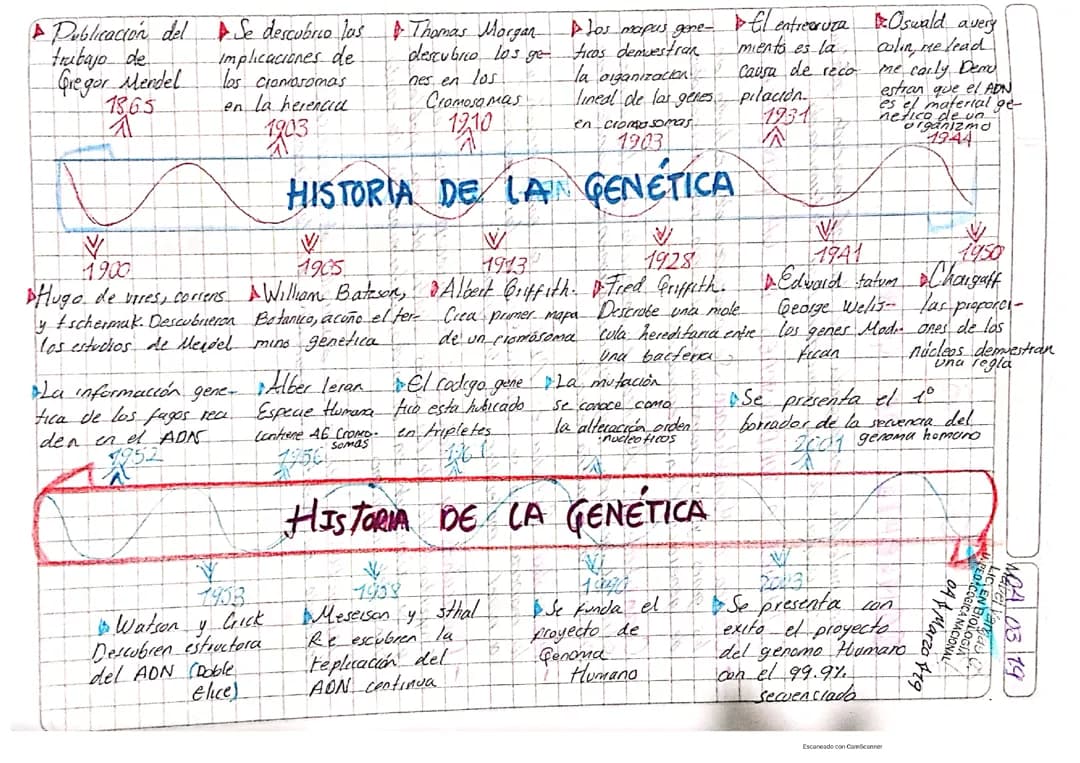 Publicación del
trabajo de
Gregor Mendel
1865
Se descubrio las
implicaciones de
los cromosomas
en la herencia
1903
Thomas Morgan
descubrio los ge-
nes en los
Cromosomas
1910
Los mapas gene-
ticos demuestran
la organizacion
lineal de los genes
en cromosomas
1903
El entrecruza
miento es la
causa de reco
pilación.
1931
Oswald avery
colin, me lead
me carly Demu
estran que el ADN
es el material ge-
netico de un
organizmo
1944
HISTORIA DE LA GENÉTICA
1900
Hugo de vires, correns
y tschermak. Descubrieron
los estudios de Mendel
1905
William Batzson,
Botanico, acuño el ter-
mino genetica
1913
Albert Griffith.
Crea primer mapa
de un cromosoma
1928
Fred Griffith.
Describe una mole
cula hereditaria entre
una bacteria
1941
Edward tatum
George Welis-
los genes Modi-
fican
1950
Chargaff
las proporci-
ones de los
núcleos demuestran
una regla
La informacción gene-
tica de los fagos reci
den en el ADN
1952
Alber leran
Especie Humana
contiene 46 Cromo-
somas
1956
El codigo gene
tico esta hubicado
en tripletes
1961
La mutación
se conoce como
la altercación orden
nucleoticos
Se presenta el 1º
borrador de la secuencia del
genoma homano
2001
HISTORIA DE LA GENÉTICA
1953
Watson y Crick
Descubren estructora
del ADN (Doble
Elice)
1958
Meselson y sthal
Re escubren la
replicación del
ADN continua
1990
Se funda el
proyecto de
Genoma
Humano
2003
Se presenta con
exito el proyecto
del genomo Humano
con el 99.9%
secuenciado
LIC EN BIOLOGIA
U. PEDAGOGICA NACIONAL
04/Marzo/19
04 03 19
Escaneado con CamScanner